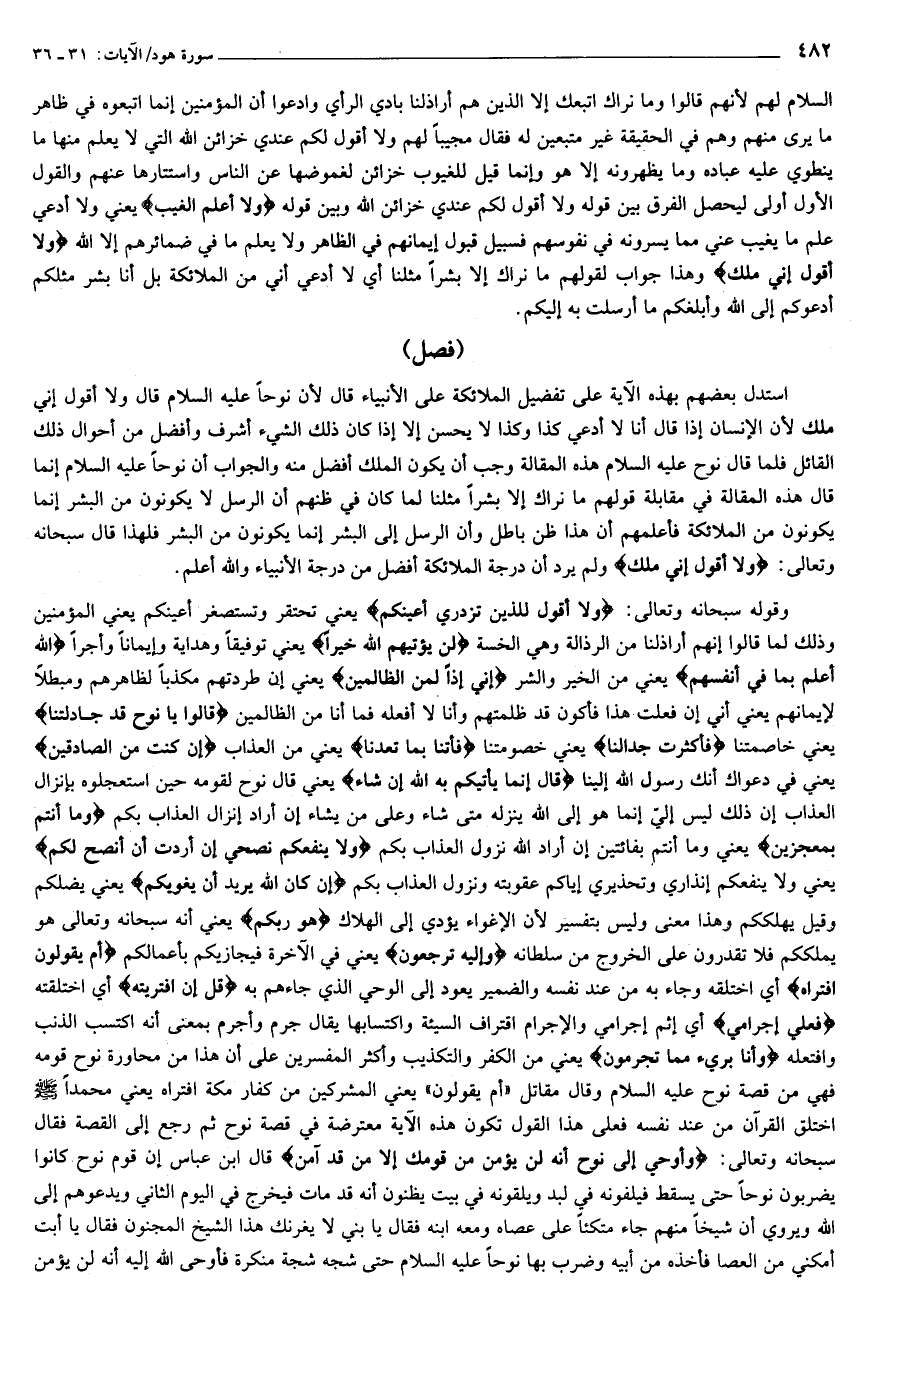 ٤٨٢ سورة هود/ الآيات: ٣١ ـ ٣٦
السلام لهم لأنهم قالوا وما نراك اتبعك إلا الذين هم أراذلنا بادي الرأي وادعوا أن المؤمنين إنما اتبعوه في ظاهر
ما يرى منهم وهم في الحقيقة غير متبعين له فقال مجيباً لهم ولا أقول لكم عندي خزائن الله التي لا يعلم منها ما
ينطوي عليه عباده وما يظهرونه إلا هو وإنما قيل للغيوب خزائن لغموضها عن الناس واستتارها عنهم والقول
الأول أولى ليحصل الفرق بين قوله ولا أقول لكم عندي خزائن الله وبين قوله ﴿ولا أعلم الغيب﴾ يعني ولا أدعي
علم ما يغيب عني مما يسرونه في نفوسهم فسبيل قبول إيمانهم في الظاهر ولا يعلم ما في ضمائرهم إلا الله ﴿ولا
أقول إني ملك﴾ وهذا جواب لقولهم ما نراك إلا بشراً مثلنا أي لا أدعي أني من الملائكة بل أنا بشر مثلكم
أدعوكم إلى الله وأبلغكم ما أرسلت به إليكم.
(فصل)
استدل بعضهم بهذه الآية على تفضيل الملائكة على الأنبياء قال لأن نوحاً عليه السلام قال ولا أقول إني
ملك لأن الإنسان إذا قال أنا لا أدعي كذا وكذا لا يحسن إلا إذا كان ذلك الشيء أشرف وأفضل من أحوال ذلك
القائل فلما قال نوح عليه السلام هذه المقالة وجب أن يكون الملك أفضل منه والجواب أن نوحاً عليه السلام إنما
قال هذه المقالة في مقابلة قولهم ما نراك إلا بشراً مثلنا لما كان في ظنهم أن الرسل لا يكونون من البشر إنما
يكونون من الملائكة فأعلمهم أن هذا ظن باطل وأن الرسل إلى البشر إنما يكونون من البشر فلهذا قال سبحانه
وتعالى: ﴿ولا أقول إني ملك﴾ ولم يرد أن درجة الملائكة أفضل من درجة الأنبياء والله أعلم.
وقوله سبحانه وتعالى: ﴿ولا أقول للذين تزدري أعينكم﴾ يعني تحتقر وتستصغر أعينكم يعني المؤمنين
وذلك لما قالوا إنهم أراذلنا من الرذالة وهي الخسة ﴿لن يؤتيهم الله خيراً﴾ يعني توفيقاً وهداية وإيماناً وأجراً ﴿الله
أعلم بما في أنفسهم﴾ يعني من الخير والشر ﴿إني إذاً لمن الظالمين﴾ يعني إن طردتهم مكذباً لظاهرهم ومبطلاً
لإيمانهم يعني أني إن فعلت هذا فأكون قد ظلمتهم وأنا لا أفعله فما أنا من الظالمين ﴿قالوا يا نوح قد جادلتنا﴾
يعني خاصمتنا ﴿فأكثرت جدالنا﴾ يعني خصومتنا ﴿فأتنا بما تعدنا﴾ يعني من العذاب ﴿إن كنت من الصادقين﴾
يعني في دعواك أنك رسول الله إلينا ﴿قال إنما يأتيكم به الله إن شاء﴾ يعني قال نوح لقومه حين استعجلوه بإنزال
العذاب إن ذلك ليس إليّ إنما هو إلى الله ينزله متى شاء وعلى من يشاء إن أراد إنزال العذاب بكم ﴿وما أنتم
بمعجزين﴾ يعني وما أنتم بفائتين إن أراد الله نزول العذاب بكم ﴿ولا ينفعكم نصحي إن أردت أن أنصح لكم﴾
يعني ولا ينفعكم إنذاري وتحذيري إياكم عقوبته ونزول العذاب بكم ﴿إن كان الله يريد أن يغويكم﴾ يعني يضلكم
وقيل يهلككم وهذا معنى وليس بتفسير لأن الإغواء يؤدي إلى الهلاك ﴿هو ربكم﴾ يعني أنه سبحانه وتعالى هو
يملككم فلا تقدرون على الخروج من سلطانه ﴿وإليه ترجعون﴾ يعني في الآخرة فيجازيكم بأعمالكم ﴿أم يقولون
افتراه﴾ أي اختلقه وجاء به من عند نفسه والضمير يعود إلى الوحي الذي جاءهم به ﴿قل إن افتريته﴾ أي اختلقته
﴿فعلي إجرامي﴾ أي إثم إجرامي والإجرام اقتراف السيئة واكتسابها يقال جرم وأجرم بمعنى أنه اكتسب الذنب
وافتعله ﴿وأنا بريء مما تجرمون﴾ يعني من الكفر والتكذيب وأكثر المفسرين على أن هذا من محاورة نوح قومه
فهي من قصة نوح عليه السلام وقال مقاتل «أم يقولون» يعني المشركين من كفار مكة افتراه يعني محمداً ﷺ
اختلق القرآن من عند نفسه فعلى هذا القول تكون هذه الآية معترضة في قصة نوح ثم رجع إلى القصة فقال
سبحانه وتعالى: ﴿وأوحي إلى نوح أنه لن يؤمن من قومك إلا من قد آمن﴾ قال ابن عباس إن قوم نوح كانوا
يضربون نوحاً حتى يسقط فيلفونه في لبد ويلقونه في بيت يظنون أنه قد مات فيخرج في اليوم الثاني ويدعوهم إلى
الله ويروي أن شيخاً منهم جاء متكئاً على عصاه ومعه ابنه فقال يا بني لا يغرنك هذا الشيخ المجنون فقال يا أبت
أمكني من العصا فأخذه من أبيه وضرب بها نوحاً عليه السلام حتى شجه شجة منكرة فأوحى الله إليه أنه لن يؤمن